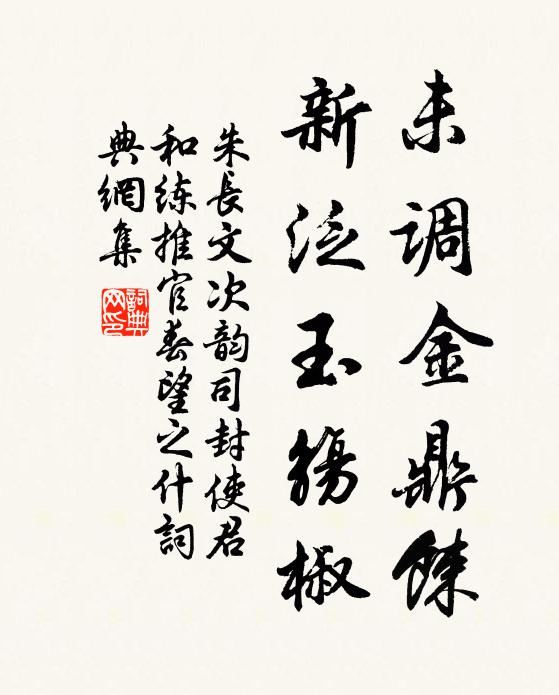 未调金鼎餗
新泛玉觞椒
朱長文次韵司封使君
和练推官春望之什詞
典網集
詞典网印